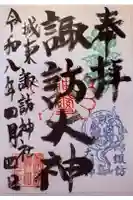 奉拝
諏訪大神
城東 諏訪神社
令和八年四月四日